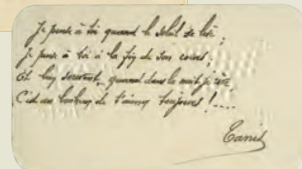 Je pense à toi quand le soleil se lève,
Je pense à toi à la fin de son cours;
Et bien souvent, quand dans la nuit je rêve
C'est au bonheur de t'aimer toujours !....